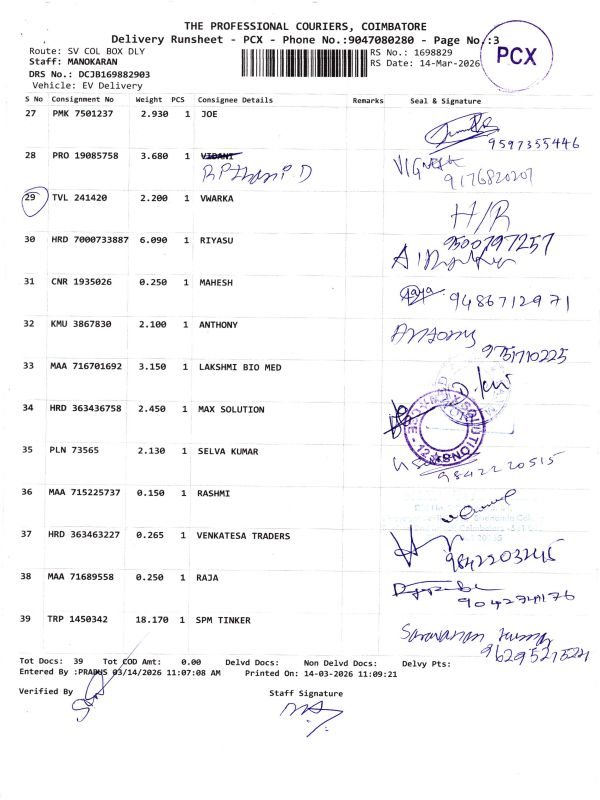 THE PROFESSIONAL COURIERS, COIMBATORE
Delivery Runsheet - PCX - Phone No.:9047080280 - Page No.:3
PCX
Route: SV COL BOX DLY
RS No.: 1698829
Staff: MANOKARAN
RS Date: 14-Mar-2026
DRS No.: DCJB169882903
Vehicle: EV Delivery
S No Consignment No Weight PCS Consignee Details Remarks Seal & Signature
27 PMK 7501237 2.930 1 JOE
9597355446
28 PRO 19085758 3.680 1 VIDANI
VIGNESH
9176820207
29 TVL 241420 2.200 1 VWARKA
H/R
30 HRD 7000733887 6.090 1 RIYASU
9500797257
31 CNR 1935026 0.250 1 MAHESH
9486712971
32 KMU 3867830 2.100 1 ANTHONY
Antony
9751710225
33 MAA 716701692 3.150 1 LAKSHMI BIO MED
34 HRD 363436758 2.450 1 MAX SOLUTION
35 PLN 73565 2.130 1 SELVA KUMAR
9842220515
36 MAA 715225737 0.150 1 RASHMI
37 HRD 363463227 0.265 1 VENKATESA TRADERS
9842203245
38 MAA 71689558 0.250 1 RAJA
39 TRP 1450342 18.170 1 SPM TINKER
Saravanan Kumar
Tot Docs: 39 Tot COD Amt: 0.00 Delvd Docs: Non Delvd Docs: Delvy Pts:
Entered By :PRABUS 03/14/2026 11:07:08 AM Printed On: 14-03-2026 11:09:21
Verified By
Staff Signature